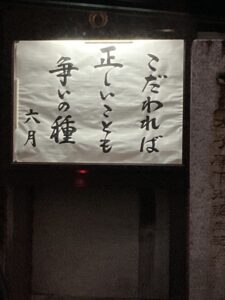 こだわれば
正しいことも
争いの種
六月